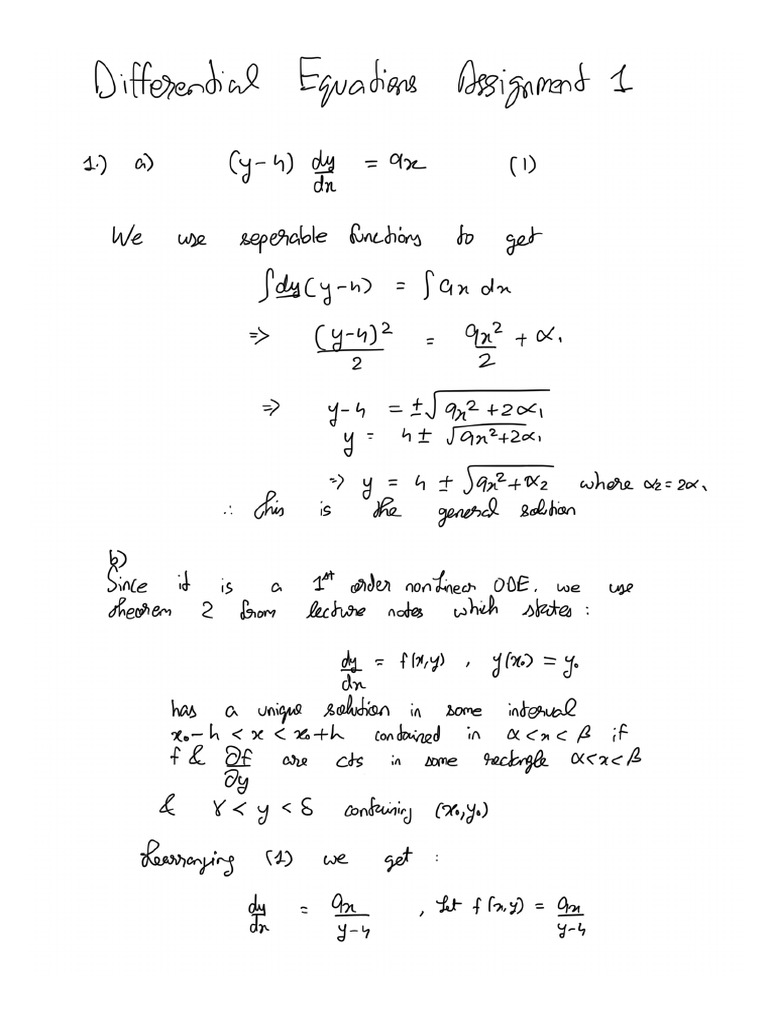 Differential Equations Assignment 1
1.) a) (y-4) dy/dx = 9x (1)
We use seperable functions to get
∫dy(y-4) = ∫9x dx
=> (y-4)²/2 = 9x²/2 + α₁
=> y-4 = ±√(9x²+2α₁)
y = 4 ± √(9x²+2α₁)
=> y = 4 ± √(9x²+α₂) where α₂=2α₁
∴ this is the general solution
b)
Since it is a 1st order nonlinear ODE, we use
theorem 2 from lecture notes which states :
dy/dx = f(x,y) , y(x₀) = y₀
has a unique solution in some interval
x₀-h < x < x₀+h contained in α<x<β if
f & ∂f/∂y are cts in some rectangle α<x<β
& γ < y < δ containing (x₀,y₀)
Rearranging (1) we get :
dy/dx = 9x/(y-4) , let f(x,y) = 9x/(y-4)